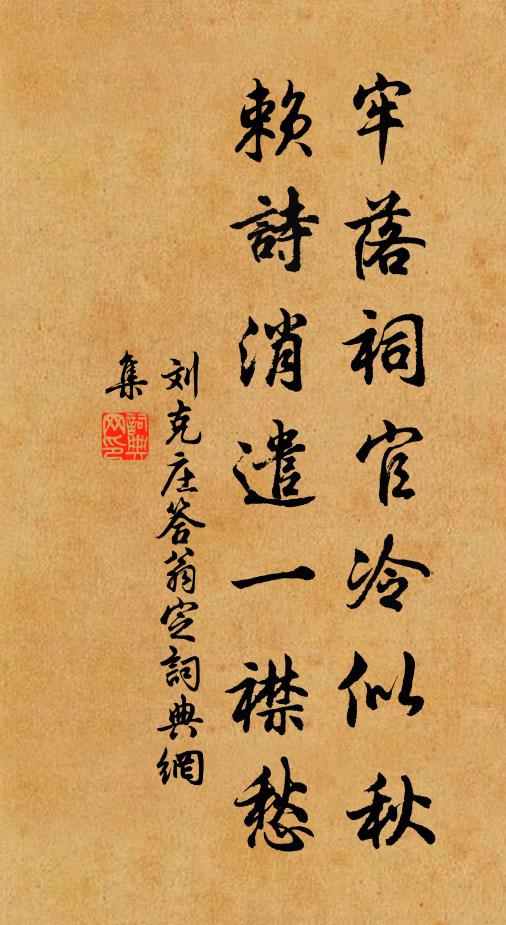 牢落祠官冷似秋
赖詩消遣一襟愁
刘克庄答翁定詞典網
集
詞典网印